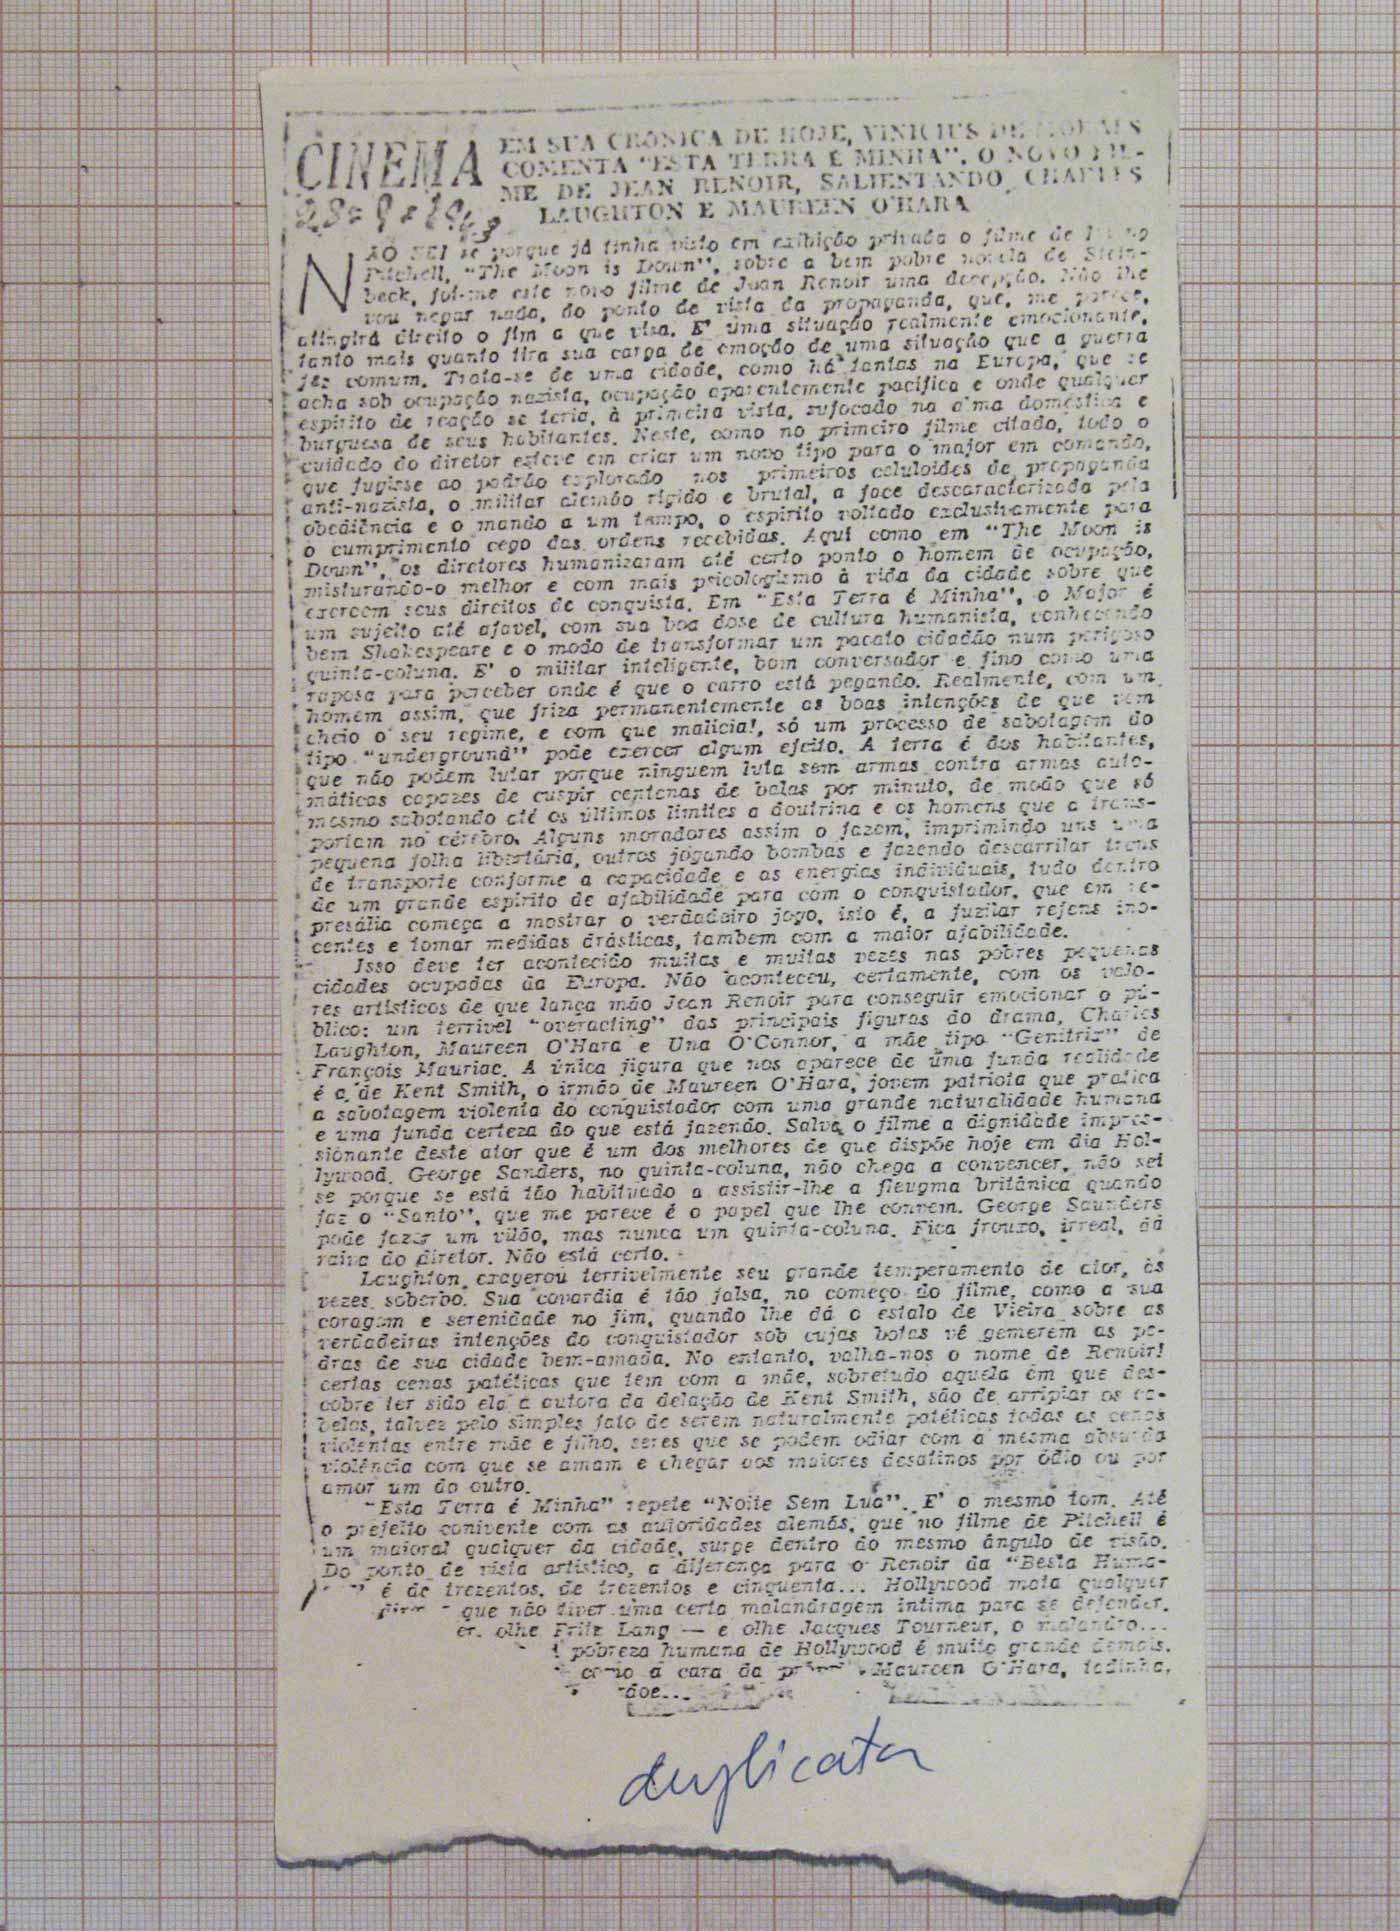 CINEMA
EM SUA CRÔNICA DE HOJE, VINICIUS DE MORAES
COMENTA "ESTA TERRA É MINHA", O NOVO FIL-
ME DE JEAN RENOIR, SALIENTANDO CHARLES
LAUGHTON E MAUREEN O'HARA
NÃO SEI se porque já tinha visto em exibição privada o filme de
Pitchell, "The Moon is Down", sobre a bem pobre novela de Stein-
beck, foi-me este novo filme de Jean Renoir uma decepção. Não lhe
vou negar nada, do ponto de vista da propaganda, que, me parece,
atingirá direito o fim a que visa. E' uma situação realmente emocionante,
tanto mais quanto tira sua carga de emoção de uma situação que a guerra
fez comum. Trata-se de uma cidade, como há tantas na Europa, que se
acha sob ocupação nazista, ocupação aparentemente pacífica e onde qualquer
espírito de reação se teria, à primeira vista, sufocado na alma doméstica e
burguesa de seus habitantes. Neste, como no primeiro filme citado, todo o
cuidado do diretor esteve em criar um novo tipo para o major em comando,
que fugisse ao padrão explorado nos primeiros celuloides de propaganda
anti-nazista, o militar alemão rígido e brutal, a face descaracterizada pela
obediência e o mando a um tempo, o espírito voltado exclusivamente para
o cumprimento cego das ordens recebidas. Aqui como em "The Moon is
Down", os diretores humanizaram até certo ponto o homem de ocupação,
misturando-o melhor e com mais psicologismo à vida da cidade sobre que
exercem seus direitos de conquista. Em "Esta Terra é Minha", o Major é
um sujeito até afavel, com sua boa dose de cultura humanista, conhecendo
bem Shakespeare e o modo de transformar um pacato cidadão num perigoso
quinta-coluna. E' o militar inteligente, bom conversador e fino como uma
raposa para perceber onde é que o carro está pegando. Realmente, com um
homem assim, que friza permanentemente as boas intenções de que vem
cheio o seu regime, e com que malícia!, só um processo de sabotagem do
tipo "underground" pode exercer algum efeito. A terra é dos habitantes,
que não podem lutar porque ninguem luta sem armas contra armas auto-
máticas capazes de cuspir centenas de balas por minuto, de modo que só
mesmo sabotando até os últimos limites a doutrina e os homens que a trans-
portam no cérebro. Alguns moradores assim o fazem, imprimindo uns uma
pequena folha libertária, outros jogando bombas e fazendo descarrilar trens
de transporte conforme a capacidade e as energias individuais, tudo dentro
de um grande espírito de afabilidade para com o conquistador, que em re-
presália começa a mostrar o verdadeiro jogo, isto é, a fuzilar refens ino-
centes e tomar medidas drásticas, tambem com a maior afabilidade.
Isso deve ter acontecido muitas e muitas vezes nas pobres pequenas
cidades ocupadas da Europa. Não aconteceu, certamente, com os valo-
res artísticos de que lança mão Jean Renoir para conseguir emocionar o pú-
blico: um terrivel "overacting" das principais figuras do drama, Charles
Laughton, Maureen O'Hara e Una O'Connor, a mãe tipo "Genitrix" de
François Mauriac. A única figura que nos aparece de uma funda realidade
é a de Kent Smith, o irmão de Maureen O'Hara, jovem patriota que pratica
a sabotagem violenta do conquistador com uma grande naturalidade humana
e uma funda certeza do que está fazendo. Salva o filme a dignidade impres-
sionante deste ator que é um dos melhores de que dispõe hoje em dia Hol-
lywood. George Sanders, no quinta-coluna, não chega a convencer, não sei
se porque se está tão habituado a assistir-lhe a fleugma britânica quando
faz o "Santo", que me parece é o papel que lhe convem. George Saunders
pode fazer um vilão, mas nunca um quinta-coluna. Fica frouxo, irreal, dá
raiva do diretor. Não está certo.
Laughton exagerou terrivelmente seu grande temperamento de ator, às
vezes soberbo. Sua covardia é tão falsa, no começo do filme, como a sua
coragem e serenidade no fim, quando lhe dá o estalo de Vieira sobre as
verdadeiras intenções do conquistador sob cujas botas vê gemerem as pe-
dras de sua cidade bem-amada. No entanto, valha-nos o nome de Renoir!
certas cenas patéticas que tem com a mãe, sobretudo aquela em que des-
cobre ter sido ela a autora da delação de Kent Smith, são de arripiar os ca-
belos, talvez pelo simples fato de serem naturalmente patéticas todas as cenas
violentas entre mãe e filho, seres que se podem odiar com a mesma absurda
violência com que se amam e chegar aos maiores desatinos por ódio ou por
amor um do outro.
"Esta Terra é Minha" repete "Noite Sem Lua". E' o mesmo tom. Até
o prefeito conivente com as autoridades alemãs, que no filme de Pitchell é
um maioral qualquer da cidade, surge dentro do mesmo ângulo de visão.
Do ponto de vista artístico, a diferença para o Renoir da "Besta Huma-
" é de trezentos, de trezentos e cinquenta... Hollywood mata qualquer
que não tiver uma certa malandragem íntima para se defender.
er, olhe Fritz Lang — e olhe Jacques Tourneur, o malandro...
pobreza humana de Hollywood é muito grande demais.
como a cara da Maureen O'Hara, tadinha,
doe...
duplicata